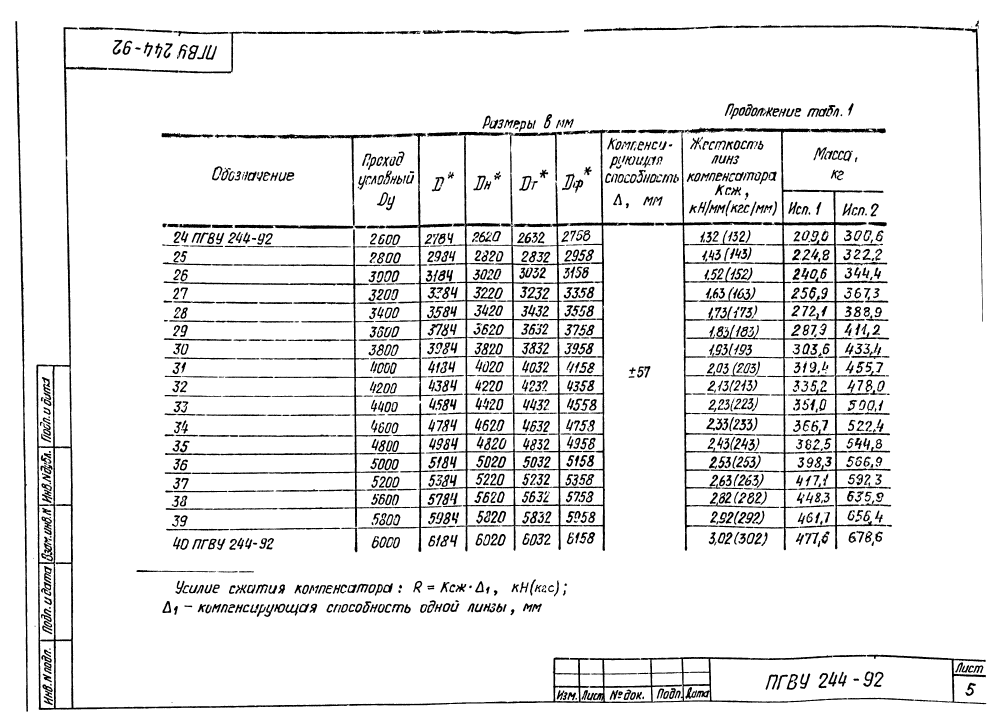 ПГВУ 244-92
Продолжение табл. 1
Размеры в мм
Обозначение | Проход условный Dу | D* | Dн* | Dт* | Dф* | Компенсирующая способность Δ, мм | Жесткость линз компенсатора Ксж, кН/мм(кгс/мм) | Масса, кг
Исп. 1 | Исп. 2
24 ПГВУ 244-92 | 2600 | 2784 | 2620 | 2632 | 2758 | 1,32 (132) | 209,0 | 300,6
25 | 2800 | 2984 | 2820 | 2832 | 2958 | 1,43 (143) | 224,8 | 322,2
26 | 3000 | 3184 | 3020 | 3032 | 3158 | 1,52 (152) | 240,6 | 344,4
27 | 3200 | 3384 | 3220 | 3232 | 3358 | 1,63 (163) | 256,9 | 367,3
28 | 3400 | 3584 | 3420 | 3432 | 3558 | 1,73 (173) | 272,1 | 388,9
29 | 3600 | 3784 | 3620 | 3632 | 3758 | 1,83 (183) | 287,9 | 411,2
30 | 3800 | 3984 | 3820 | 3832 | 3958 | 1,93 (193 | 303,6 | 433,4
31 | 4000 | 4184 | 4020 | 4032 | 4158 | ±57 | 2,03 (203) | 319,4 | 455,7
32 | 4200 | 4384 | 4220 | 4232 | 4358 | 2,13 (213) | 335,2 | 478,0
33 | 4400 | 4584 | 4420 | 4432 | 4558 | 2,23 (223) | 351,0 | 500,1
34 | 4600 | 4784 | 4620 | 4632 | 4758 | 2,33 (233) | 366,7 | 522,4
35 | 4800 | 4984 | 4820 | 4832 | 4958 | 2,43 (243) | 382,5 | 544,8
36 | 5000 | 5184 | 5020 | 5032 | 5158 | 2,53 (253) | 398,3 | 566,9
37 | 5200 | 5384 | 5220 | 5232 | 5358 | 2,63 (263) | 417,1 | 592,3
38 | 5600 | 5784 | 5620 | 5632 | 5758 | 2,82 (282) | 448,3 | 635,9
39 | 5800 | 5984 | 5820 | 5832 | 5958 | 2,92 (292) | 461,7 | 656,4
40 ПГВУ 244-92 | 6000 | 6184 | 6020 | 6032 | 6158 | 3,02 (302) | 477,6 | 678,6
Усилие сжатия компенсатора: R = Ксж·Δ1, кН(кгс);
Δ1 – компенсирующая способность одной линзы, мм
Инв. N подл. | Подп. и дата | Взам. инв. N | Инв. N дубл. | Подп. и дата
Изм. | Лист | № док. | Подп. | Дата
ПГВУ 244-92
Лист
5